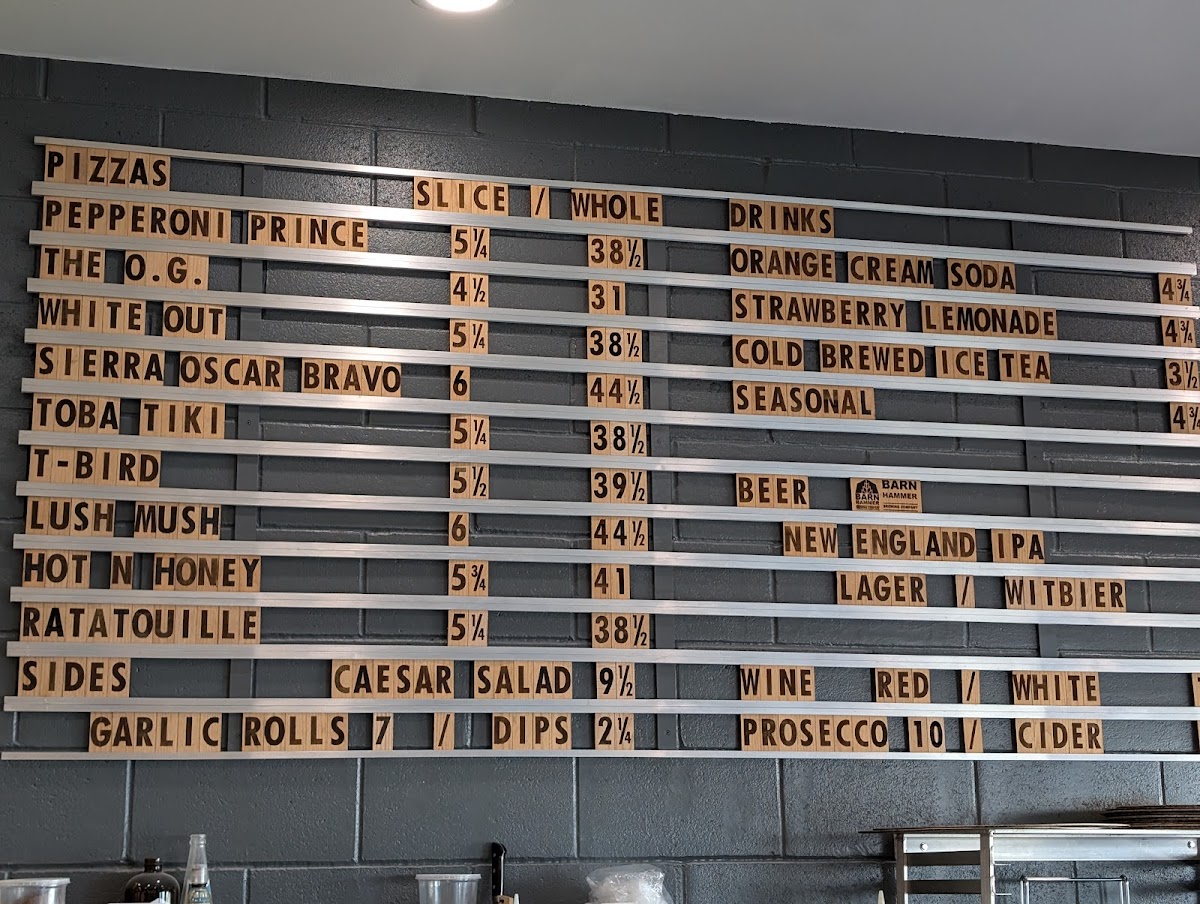 PIZZAS SLICE / WHOLE
PEPPERONI PRINCE 5¼ 38½
THE O.G. 4½ 31
WHITE OUT 5¼ 38½
SIERRA OSCAR BRAVO 6 44½
TOBA TIKI 5¼ 38½
T-BIRD 5½ 39½
LUSH MUSH 6 44½
HOT N HONEY 5¾ 41
RATATOUILLE 5¼ 38½
SIDES CAESAR SALAD 9½
GARLIC ROLLS 7 / DIPS 2¼
DRINKS
ORANGE CREAM SODA 4¾
STRAWBERRY LEMONADE 4¾
COLD BREWED ICE TEA 3½
SEASONAL 4¾
BEER BARN HAMMER
NEW ENGLAND IPA
LAGER / WITBIER
WINE RED / WHITE
PROSECCO 10 / CIDER